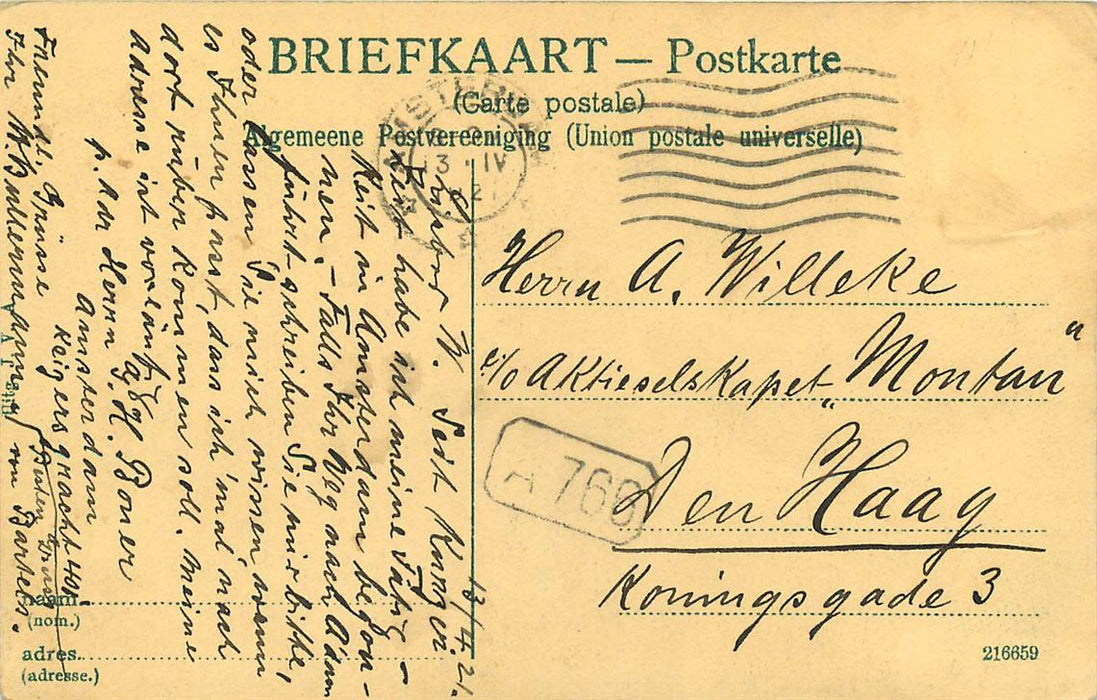 BRIEFKAART — Postkarte
(Carte postale)
Algemeene Postvereeniging (Union postale universelle)
13 IV 21
13/4. 21.
W. Seit Kurzer
Zeit habe ich meine Tätig-
keit in Amsterdam begon-
nen. - Falls Ihr Weg nach A'dam
führt schreiben Sie mir bitte,
oder lassen Sie mich wissen, wann
es Ihnen passt, dass ich 'mal nach
dort rüber kommen soll. Meine
Adresse ist vorläufig
p. Adr Herrn H. Boner
Amsterdam
Keizersgracht
Freundl. Grüsse
Ihr
Herrn A. Willeke
c/o Aktieselskapet „Montan"
Den Haag
Koningsgade 3
A 766
naam
(nom.)
adres
(adresse.)
216659